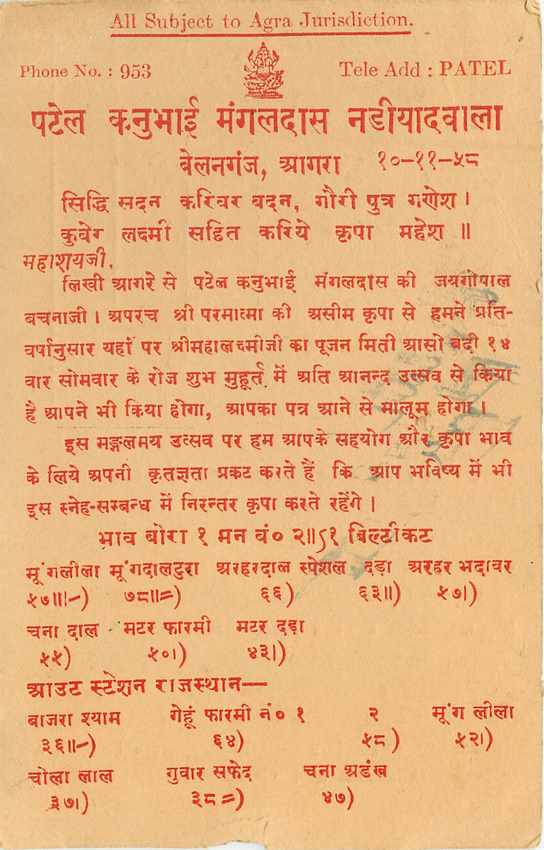 All Subject to Agra Jurisdiction.
Phone No. : 953
Tele Add : PATEL
पटेल कनुभाई मंगलदास नडीयादवाला
बेलनगंज, आगरा १०-११-५८
सिद्धि सदन करिवर वदन, गौरी पुत्र गणेश ।
कुवेर लक्ष्मी सहित करिये कृपा महेश ॥
महाशयजी.
लिखी आगरे से पटेल कनुभाई मंगलदास की जयगोपाल
बचनाजी । अपरच श्री परमात्मा की असीम कृपा से हमने प्रति-
वर्षानुसार यहां पर श्रीमहालक्ष्मीजी का पूजन मिती आसो बदी १४
वार सोमवार के रोज शुभ मुहूर्त में अति आनन्द उत्सव से किया
है आपने भी किया होगा, आपका पत्र आने से मालूम होगा ।
इस मङ्गलमय उत्सव पर हम आपके सहयोग और कृपा भाव
के लिये अपनी कृतज्ञता प्रकट करते हैं कि आप भविष्य में भी
इस स्नेह-सम्बन्ध में निरन्तर कृपा करते रहेंगे ।
भाव बोरा १ मन वं० २॥ऽ१ बिल्टीकट
मूंगलीला मूंगदालटुरा अरहरदाल स्पेशल दड़ा अरहर भदावर
५७॥।-) ७८॥=) ६६) ६३॥) ५७।)
चना दाल मटर फारमी मटर दड़ा
५५) ५०।) ४३।)
आउट स्टेशन राजस्थान—
बाजरा श्याम गेहूं फारमी नं० १ २ मूंग लीला
३६॥-) ६४) ५८) ५२।)
चोला लाल गुवार सफेद चना अडंख
३७।) ३८=) ४७)